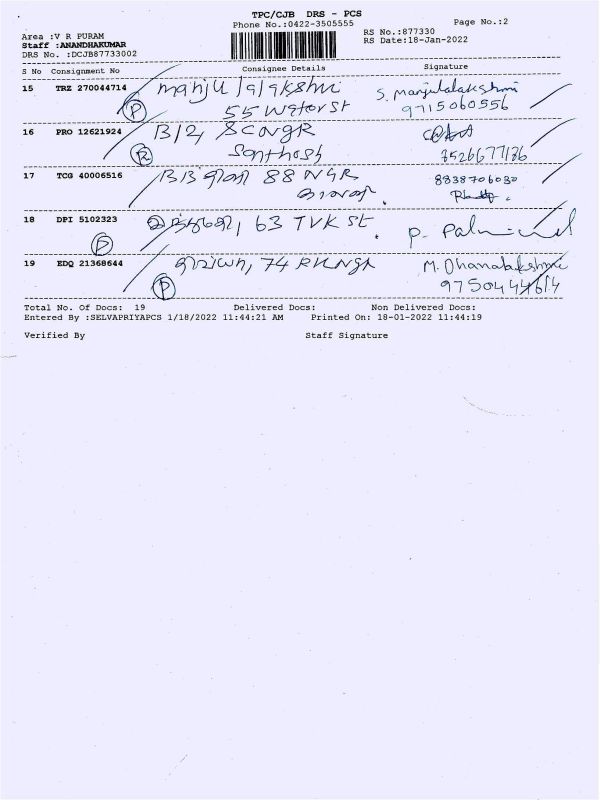 TPC/CJB DRS - PCS
Phone No.:0422-3505555
Page No.:2
Area :V R PURAM
RS No.:877330
Staff :ANANDHAKUMAR
RS Date:18-Jan-2022
DRS No. :DCJB87733002
S No Consignment No Consignee Details Signature
15 TRZ 270044714 manjulalakshmi S. Manjulalakshmi
P 55 Water st 9715060556
16 PRO 12621924 B/2, SCNGR
R Santhosh 8526677136
17 TCG 40006516 88 NGR 8838706030
18 DPI 5102323 63 TVK St. P.
P
19 EDQ 21368644 74 RKNGR M. Dhanalakshmi
P 9750444614
Total No. Of Docs: 19 Delivered Docs: Non Delivered Docs:
Entered By :SELVAPRIYAPCS 1/18/2022 11:44:21 AM Printed On: 18-01-2022 11:44:19
Verified By Staff Signature